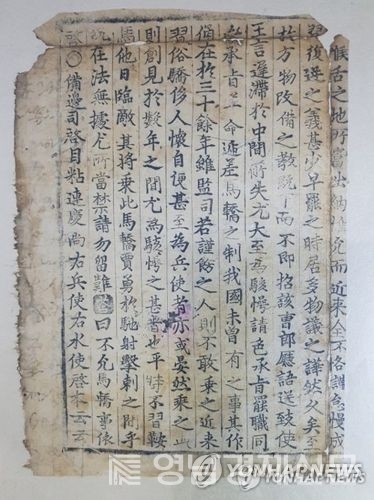 喉舌之地所當出納惟允而近来全不恪謹怠慢成
習後進之義甚少早罷之時居多物議之譁然久矣至
於方物改備之教既下而不即招該曹郎廳語送致使
王言遲滯於中間所失尤大至爲駭愕請色承旨罷職同
承旨 命遞差馬轎之制我國未曾有之事其作
俑在於三十餘年雖監司若謹飭之人則不敢乘之近来
習俗驕侈人懷自便甚至為兵使者亦或晏然乘之此
則創見於數年之間尤爲駭愕之甚者也平時不習鞍
他日臨敵其將乘此馬轎賈勇於馳射擊刺之間乎
況在法無據尤所當禁請勿留難答曰不允馬轎事依
啓○備邊司啓目粘連慶尚右兵使右水使啓本云云
영남경제신문
YONHAPNEWS
YONHAPNEWS